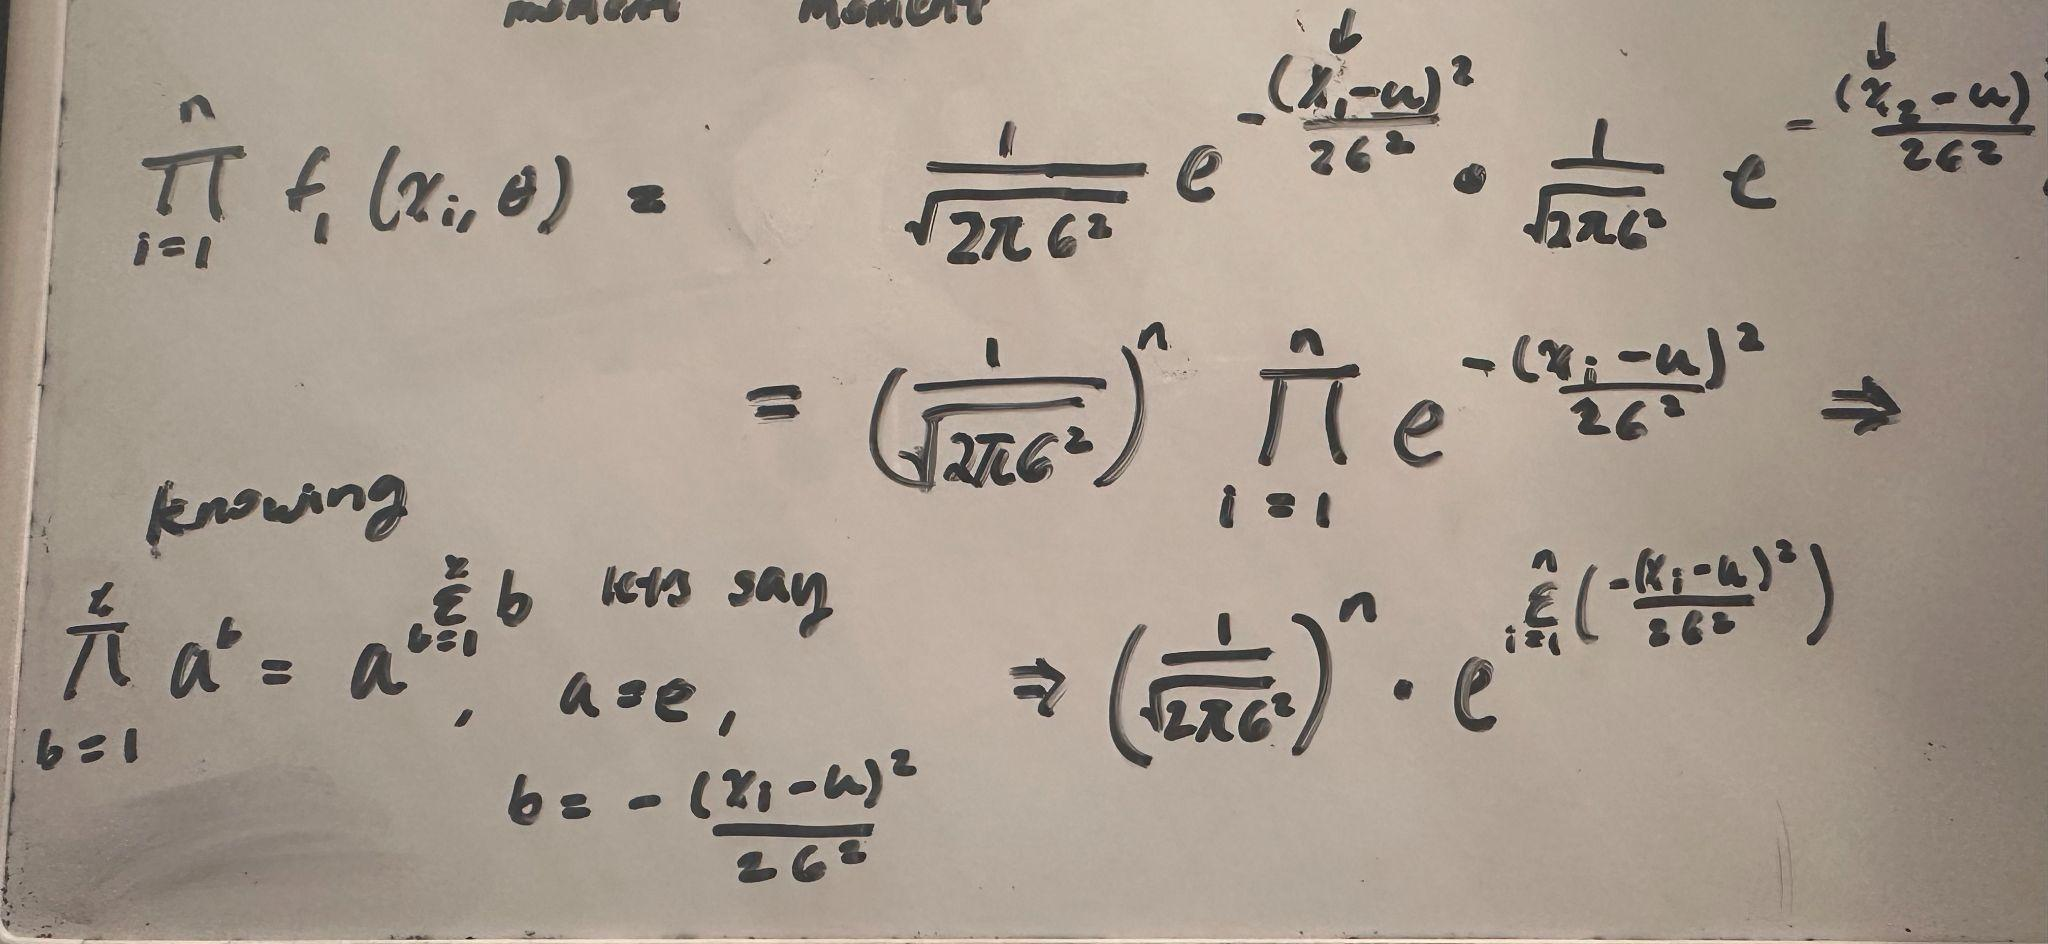 moment moment
∏_{i=1}^{n} f_1(x_i, θ) = \frac{1}{\sqrt{2π6^2}} e^{-\frac{(x_1-u)^2}{26^2}} · \frac{1}{\sqrt{2π6^2}} e^{-\frac{(x_2-u)}{26^2}}
= (\frac{1}{\sqrt{2π6^2}})^n ∏_{i=1}^{n} e^{-\frac{(x_i-u)^2}{26^2}} ⇒
knowing
∏_{b=1}^{z} a^b = a^{Σ_{b=1}^{z} b}, lets say a=e,
b = -\frac{(x_i-u)^2}{26^2}
⇒ (\frac{1}{\sqrt{2π6^2}})^n · e^{Σ_{i=1}^{n} (\frac{-(x_i-u)^2}{26^2})}